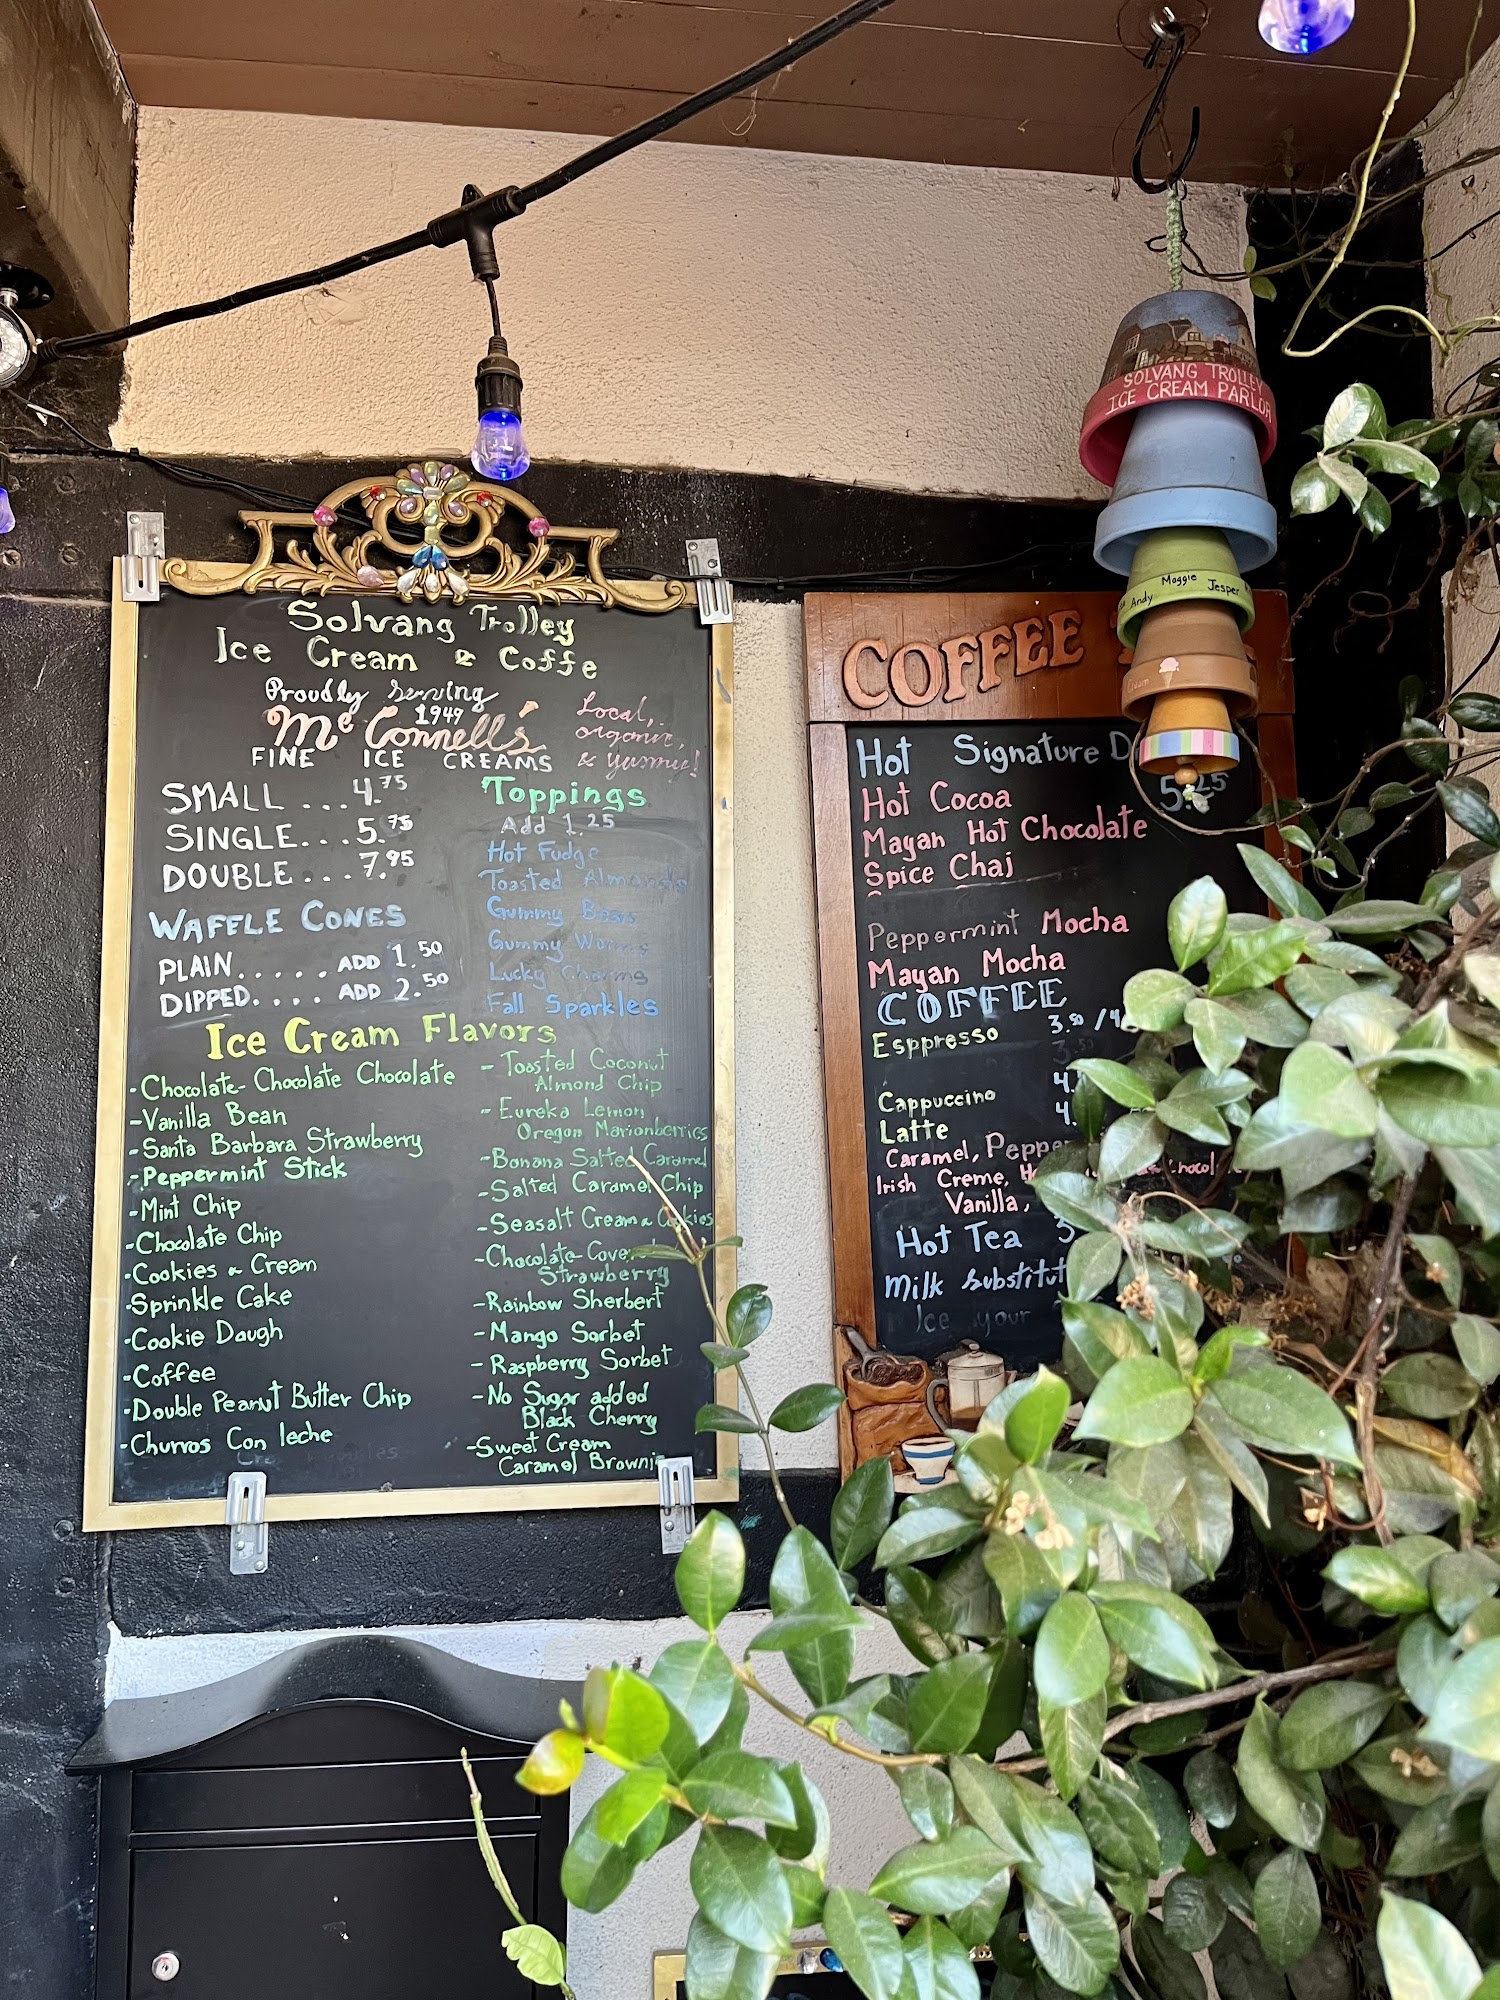 Solvang Trolley
Ice Cream & Coffe
Proudly Serving
1949
McConnell's
FINE ICE CREAMS
Local,
organic,
& yummie!
SMALL ... 4.75
SINGLE... 5.75
DOUBLE... 7.95
WAFFLE CONES
PLAIN..... ADD 1.50
DIPPED.... ADD 2.50
Toppings
Add 1.25
Hot Fudge
Toasted Almonds
Gummy Bears
Gummy Worms
Lucky Charms
Fall Sparkles
Ice Cream Flavors
-Chocolate-Chocolate Chocolate
-Vanilla Bean
-Santa Barbara Strawberry
-Peppermint Stick
-Mint Chip
-Chocolate Chip
-Cookies & Cream
-Sprinkle Cake
-Cookie Dough
-Coffee
-Double Peanut Butter Chip
-Churros Con leche
- Toasted Coconut
Almond Chip
- Eureka Lemon
Oregon Marionberries
-Banana Salted Caramel
-Salted Caramel Chip
-Seasalt Cream & Cookies
-Chocolate-Cove
Strawberry
-Rainbow Sherbert
-Mango Sorbet
- Raspberry Sorbet
-No Sugar added
Black Cherry
-Sweet Cream
Caramel Brownie
SOLVANG TROLLEY
ICE CREAM PARLOR
Andy Maggie Jesper
COFFEE
Hot Signature D
5.25
Hot Cocoa
Mayan Hot Chocolate
Spice Chai
Peppermint Mocha
Mayan Mocha
COFFEE
Esppresso 3.50 /4
Cappuccino 4.
Latte 4.
Caramel, Pepper
Irish Creme, H
Vanilla,
Hot Tea 3
Milk substitut
Ice your